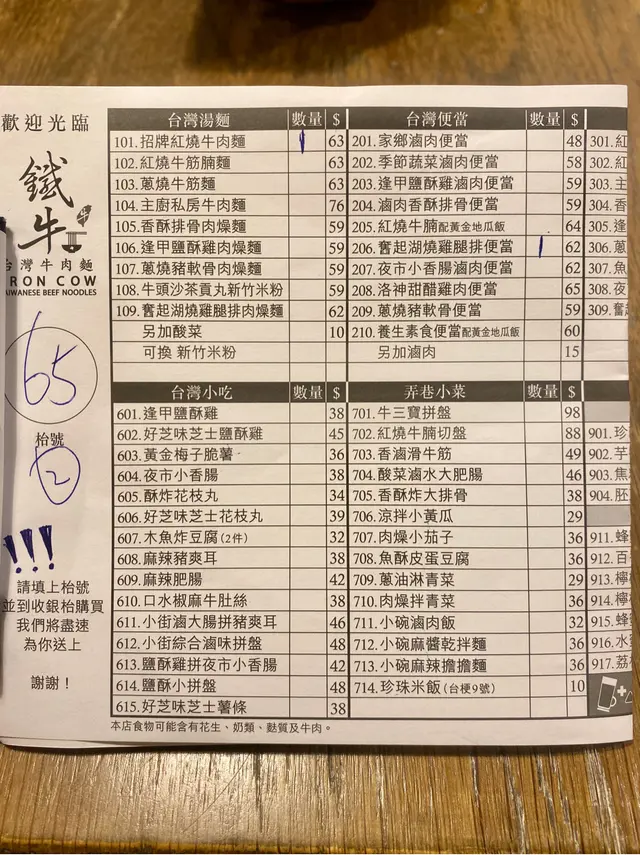 歡迎光臨
鐵牛
台灣牛肉麵
IRON COW
TAIWANESE BEEF NOODLES
65
枱號
2
!!!
請填上枱號
並到收銀枱購買
我們將盡速
為你送上
謝謝！
台灣湯麵 數量 $
101.招牌紅燒牛肉麵 63
102.紅燒牛筋腩麵 63
103.蔥燒牛筋麵 63
104.主廚私房牛肉麵 76
105.香酥排骨肉燥麵 59
106.逢甲鹽酥雞肉燥麵 59
107.蔥燒豬軟骨肉燥麵 59
108.牛頭沙茶貢丸新竹米粉 59
109.奮起湖燒雞腿排肉燥麵 62
另加酸菜 10
可換 新竹米粉
台灣便當 數量 $
201.家鄉滷肉便當 48
202.季節蔬菜滷肉便當 58
203.逢甲鹽酥雞滷肉便當 59
204.滷肉香酥排骨便當 59
205.紅燒牛腩配黃金地瓜飯 64
206.奮起湖燒雞腿排便當 62
207.夜市小香腸滷肉便當 62
208.洛神甜醋雞肉便當 65
209.蔥燒豬軟骨便當 59
210.養生素食便當配黃金地瓜飯 60
另加滷肉 15
301.紅
302.紅
303.主
304.香
305.逢
306.蔥
307.魚
308.夜
309.奮
台灣小吃 數量 $
601.逢甲鹽酥雞 38
602.好芝味芝士鹽酥雞 45
603.黃金梅子脆薯 36
604.夜市小香腸 38
605.酥炸花枝丸 34
606.好芝味芝士花枝丸 39
607.木魚炸豆腐(2件) 32
608.麻辣豬爽耳 38
609.麻辣肥腸 42
610.口水椒麻牛肚絲 38
611.小街滷大腸拼豬爽耳 46
612.小街綜合滷味拼盤 48
613.鹽酥雞拼夜市小香腸 42
614.鹽酥小拼盤 48
615.好芝味芝士薯條 38
弄巷小菜 數量 $
701.牛三寶拼盤 98
702.紅燒牛腩切盤 88
703.香滷滑牛筋 49
704.酸菜滷水大肥腸 46
705.香酥炸大排骨 38
706.涼拌小黃瓜 29
707.肉燥小茄子 36
708.魚酥皮蛋豆腐 36
709.蔥油淋青菜 29
710.肉燥拌青菜 36
711.小碗滷肉飯 32
712.小碗麻醬乾拌麵 36
713.小碗麻辣擔擔麵 36
714.珍珠米飯(台梗9號) 10
901.珍
902.芋
903.焦
904.胚
911.蜂
912.百
913.檸
914.檸
915.蜂
916.水
917.荔
本店食物可能含有花生、奶類、麩質及牛肉。